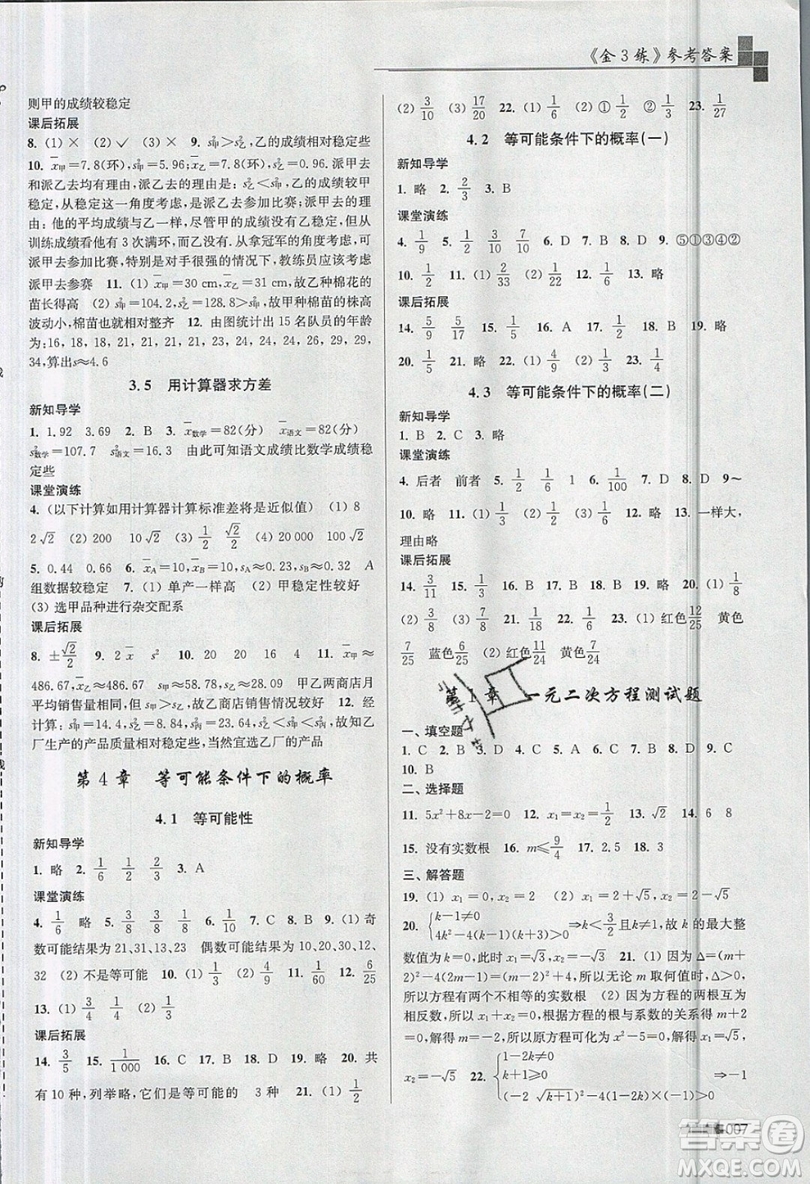 《金3练》参考答案
则甲的成绩较稳定
课后拓展
8. (1) × (2) ✓ (3) × 9. s²甲＞s²乙,乙的成绩相对稳定些
10. x̄甲=7.8(环),s²甲=5.96;x̄乙=7.8(环),s²乙=0.96.派甲去
和派乙去均有道理;派乙去的理由是:s²乙＜s²甲,乙的成绩较甲
稳定,从稳定这一角度考虑,派乙去参加比赛;派甲去的理由
是:他的平均成绩与乙一样,尽管甲的成绩不如乙稳定,但从
训练成绩看他有3次满环,而乙只有1次.从拿冠军的角度考虑,
派甲去参加比赛,特别是对手很强的情况下,教练员应该考虑
派甲去参赛 11. (1) x̄甲=30 cm,x̄乙=31 cm,故乙种棉花的
苗长得高 (2) s²甲=104.2,s²乙=128.8＞s²甲,故甲种棉苗的株高
波动小,棉苗出的就相对整齐 12. 由图统计出15名队员的年龄
为:16,18,18,21,21,21,21,21,23,24,24,26,26,29,
34,算出s≈4.6
3.5 用计算器求方差
新知导学
1. 1.92 3.69 2. B 3. x̄数学=82(分) x̄语文=82(分)
s²数学=107.7 s²语文=16.3 由此可知语文成绩比数学成绩稳
定些
课堂演练
4. (以下计算如用计算器计算标准差将是近似值) (1) 8
2√2 (2) 200 10√2 (3) 1/2 √2/2
5. 0.4 0.44 0.663 6. x̄A=5 x̄B=5 sA≈0.32 sB≈0.52 A
组数据较稳定 7. (1) 单产一样高 (2) 甲稳定性较好
(3) 选甲品种进行杂交配系
课后拓展
8. ±√2/2 9. x̄ s² 10. 20 20 16 4 11. x̄甲≈
486.67,x̄乙≈486.67 甲乙两商店月
平均销售量相同 (2) s²甲＞s²乙,故乙商店的销售稳定 12. 经
计算得s²甲=14.56,s甲=3.8,s²乙=8.84,s乙=2.97,s²甲＞s²乙,故知乙
厂生产的产品质量相对稳定些,当然宜选乙厂的产品
第4章 等可能条件下的概率
4.1 等可能性
新知导学
1. 略 2. 1/6 1/2 1/2 3. A
课堂演练
4. 1/6 略 5. 2/3 6. 1/2 7. 1/5 8. 1/10 9. (1) 奇
数可能结果为21,31,13,23 偶数可能结果为10,20,30,12,
32 (2) 不是等可能 10. 3/4 11. 1/60 12. 6/25
13. (1) 3/4 (2) 1/4
课后拓展
14. 3/5 15. 1/1000 16. C 17. B 18. D 19. 略 20. 共
有10种,列举略,它们是等可能的 3种 21. (1) 1/2
(2) 3/10 (3) 17/20 22. (1) 1/6 (2) ① 1/2 ② 1/2 23. 1/27
4.2 等可能条件下的概率(一)
新知导学
1. 略 2. 2/3 3. B
课堂演练
4. 1/9 5. 1/2 3/10 7/10 6. D 7. B 8. D 9. ⑤①③④②
10. 1/2 11. (1) 1/2 (2) 1/3 (3) 5/6 12. 略 13. 略
课后拓展
14. 5/9 5/17 15. 2/5 16. C 17. B 18. D 19. 略
20. 略 1/6 21. 略 22. (1) 4/9 (2) 略 23. 1/6 24. 略
4.3 等可能条件下的概率(二)
新知导学
1. B 2. C 3. 略
课堂演练
4. 后者 前者 5. 1/2 1/4 6. 1/100 7. D 8. D 9～
10. 略 11. (1) 1/3 (2) 1/2 12. 2/3 13. 一样大,
理由略
课后拓展
14. 3/11 15. 1/3 16. D 17. B 18～19. 略 20. (1) 1/8
(2) 3/8 (3) 7/8 21. 1/18 22. 9/25 23. (1) 红色12/25 黄色
7/25 蓝色6/25 (2) 红色11/24 黄色7/24 蓝色6/24
第1章 一元二次方程测试题
一、填空题
1. C 2. C 3. A 4. B 5. C 6. C 7. C 8. A 9. D
10. B
二、选择题
11. 5x²+8x−2=0 12. x₁=x₂=1 13. √2 14. 6 8
15. 没有实数根 16. m≤9/4 17. 2.5 18. 2
三、解答题
19. (1) x₁=0,x₂=4 (2) x₁=2+√5,x₂=2−√5
20. {k−1≠0 4k²−4(k−1)(k+3)＞0 ⇒k＜3/2且k≠1,故k的最大整
数值为k=0,方程的根为x₁=√3,x₂=−√3 21. (1) 因为Δ=(m+
2)²−4(2m−1)=(m−2)²+4＞0,所以无论m取何值时,Δ＞0,
所以方程有两个不相等的实数根 (2) 因为方程的两根互为相
反数,所以x₁+x₂=0,根据方程的根与系数的关系得m+2
=0,解得m=−2,所以原方程可化为x²−5=0,解得x₁=√5,
x₂=−√5 22. {1−2k≠0 k+1≥0 (−2√k+1)²−4(1−2k)(−1)＞0 ⇒−1
007
答案圈
MXQE.COM